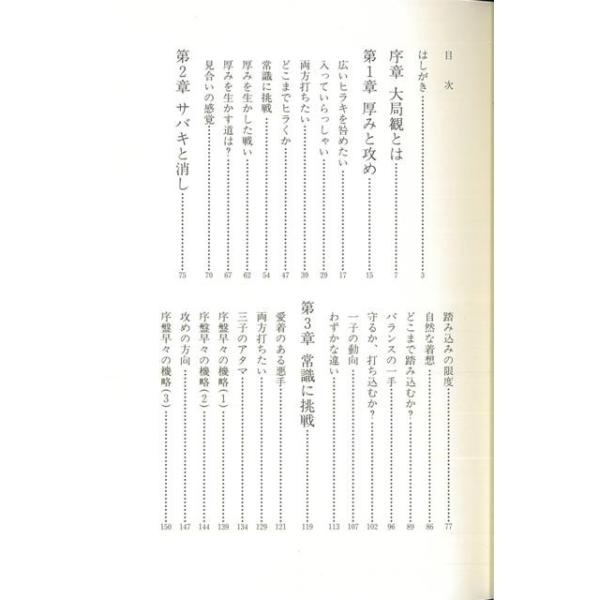 目次
はしがき 3
序章 大局観とは 7
第1章 厚みと攻め 15
広いヒラキを咎めたい 17
入っていらっしゃい 29
両方打ちたい 39
どこまでヒラくか 47
常識に挑戦 54
厚みを生かした戦い 62
厚みを生かす道は? 67
見合いの感覚 70
第2章 サバキと消し 75
踏み込みの限度 77
自然な着想 86
どこまで踏み込むか? 89
バランスの一手 96
守るか、打ち込むか? 102
一子の動向 107
わずかな違い 113
第3章 常識に挑戦 119
愛着のある悪手 121
両方打ちたい 129
三子のアタマ 134
序盤早々の機略(1) 139
序盤早々の機略(2) 144
攻めの方向 147
序盤早々の機略(3) 150